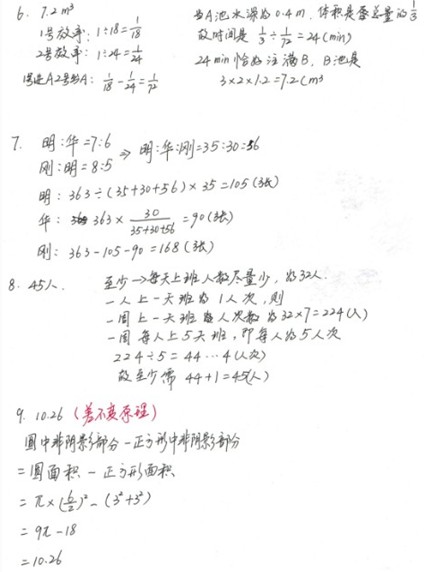 6. 7.2 m³
1号效率: 1÷18=1/18
2号效率: 1÷24=1/24
1号进A2号出A: 1/18-1/24=1/72
当A池水深为0.4m, 体积是原总量的1/3
故时间是 1/3÷1/72=24(min)
24min恰好注满B, B池是
3×2×1.2=7.2(m³
7. 明:华=7:6
刚:明=8:5 ⇒ 明:华:刚=35:30:56
明: 363÷(35+30+56)×35=105(张)
华: 363×30/(35+30+56)=90(张)
刚: 363-105-90=168(张)
8. 45人. 至少→每天上班人数尽量少, 为32人
一人上一天班为1人次, 则
一周上一天班人次数为32×7=224(人)
一周每人上5天班, 即每人为5人次
224÷5=44…4(人次)
故至少需 44+1=45(人)
9. 10.26 (差不变原理)
圆中非阴影部分-正方形中非阴影部分
=圆面积-正方形面积
=π×(6/2)²-(3²+3²)
=9π-18
=10.26